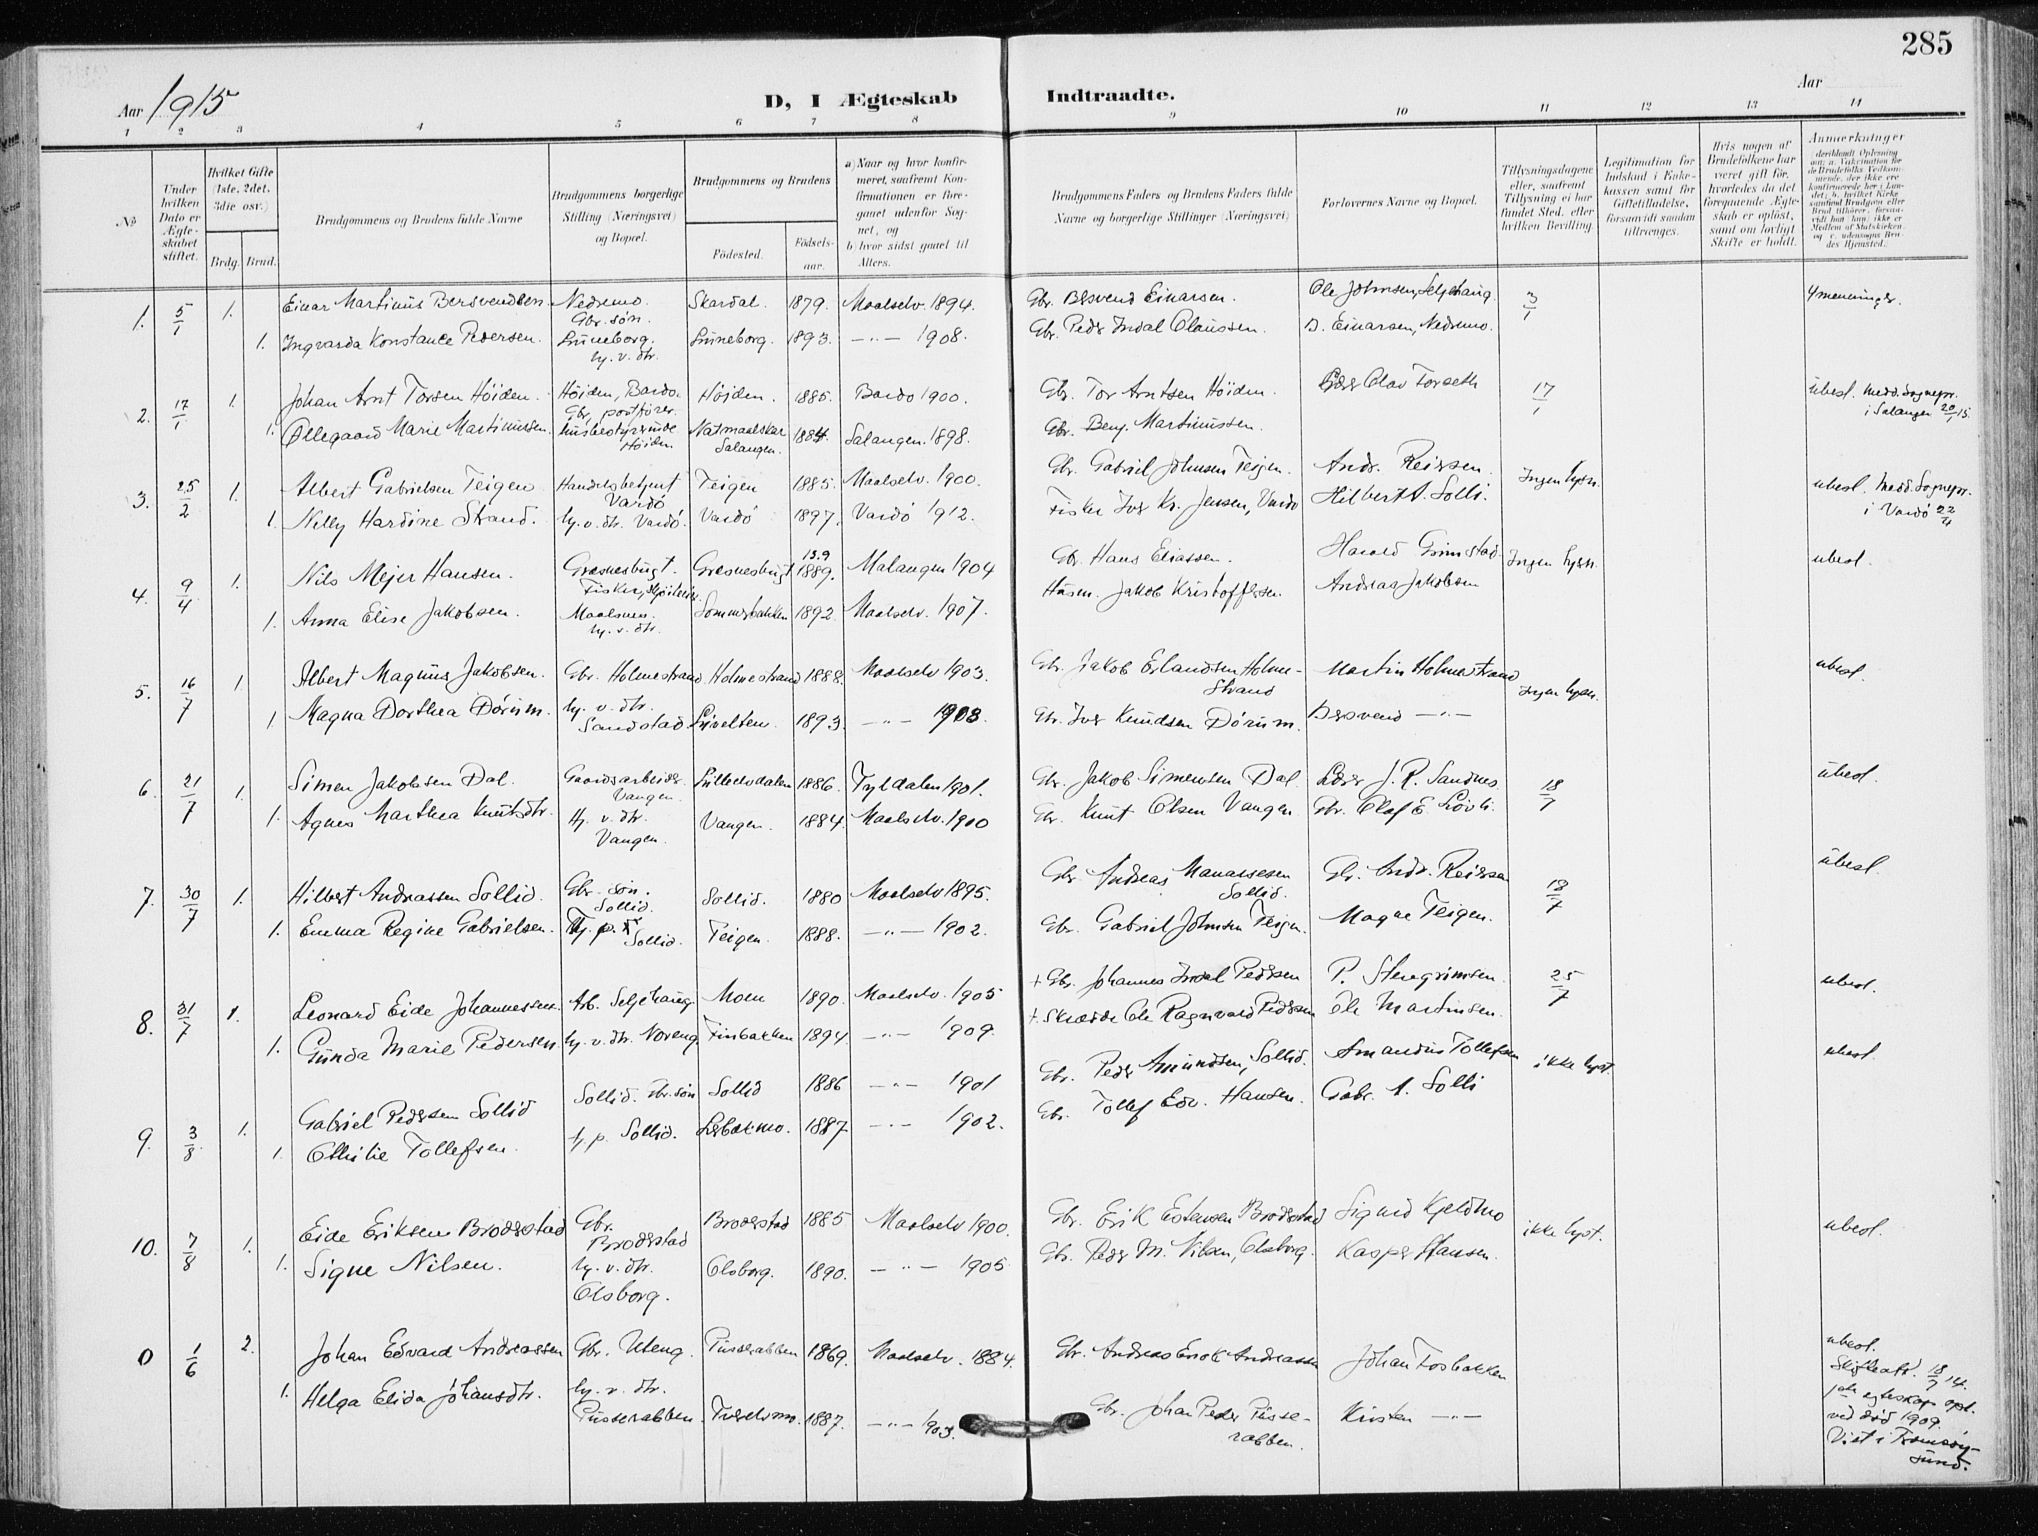 285
Aar 1915
D, I Ægteskab Indtraadte.
Aar
1 2 3 4 5 6 7 8 9 10 11 12 13 14
No
Under hvilken Dato er Ægteskabet stiftet.
Hvilket Gifte (1ste, 2det, 3die osv.)
Brdg. Brud.
Brudgommens og Brudens fulde Navne
Brudgommens borgerlige Stilling (Næringsvei) og Bopæl.
Brudgommens og Brudens
Födested. Födsels-aar.
a) Naar og hvor konfirmeret, saafremt Konfirmationen er foregaaet udenfor Sognet, og
b) hvor sidst gaaet til Alters.
Brudgommens Faders og Brudens Faders fulde Navne og borgerlige Stillinger (Næringsvei)
Forlovernes Navne og Bopæl.
Tillysningsdagene eller, saafremt Tillysning ei har fundet Sted, efter hvilken Bevilling.
Legitimation for Indskud i Enkekassen samt for Giftetilladelse, forsaavidt saadan tiltrænges.
Hvis nogen af Brudefolkene har været gift för, hvorledes da det foregaaende Ægteskab er oplöst, samt om lovligt Skifte er holdt.
Anmerkninger
1. 5/1 1. Einar Martinus Bersvendsen Nedremo. Gbr. søn. Skardal. 1879. Maalselv. 1894. Gbr. Bersvend Einarsen. Ole Johnsen, Seljehaug. 3/1 4menninger.
1. Ingvarda Konstance Pedersen. Luneborg. hj. v. dtr. Luneborg. 1893. —"— 1908. Gbr. Peder Indal Claussen. B. Einarsen, Nedremo.
2. 17/1 1. Johan Arnt Torsen Höiden. Höiden, Bardo. Gbr, postförer. Höiden. 1885. Bardo 1900. Gbr. Tor Arntsen Höiden. Lærer Olav Forseth 17/1 ubesl. Medd. Sognepr. i Salangen 20/1 15.
1. Ollegaard Marie Martinussen. husbestyrerinde Höiden Salangen. 1884. Salangen. 1898. Gbr. Benj. Martinussen.
3. 25/2 1. Albert Gabrielsen Teigen Handelsbetjent Vardö Teigen 1885. Maalselv. 1900. Gbr. Gabriel Johnsen Teigen. Andr. Reiersen. Ingen lysn. ubesl. Medd. Sognepr. i Vardö 22/4
1. Nelly Hardine Strand. hj. v. dtr. Vardö. Vardö 1897. Vardö 1912. Fisker Iver Kr. Jensen, Vardö Hilbert A. Solli.
4. 9/4 1. Nils Mejer Hansen. Græsnesbugt. Fisker, Græsnesbugt 13.9 1889. Malangen 1904 Gbr. Hans Eliassen. Harald Grimstad. Ingen lysn. ubesl.
1. Anna Elise Jakobsen. Maalsnes. hj. v. dtr. Sommerbakken 1892. Maalselv. 1907. Husm. Jakob Kristoffersen. Andreas Jakobsen
5. 16/7 1. Albert Magnus Jakobsen. Gbr. Holmestrand. Holmestrand 1888. Maalselv 1903. Gbr. Jakob Erlandsen Holmestrand Martin Holmestrand Ingen lysn. ubesl.
1. Magna Dorthea Dörum. hj. v. dtr. Sandstad. 1893. —"— 1908. Gbr. Iver Knudsen Dörum. Bersvend —"—
6. 21/7 1. Simen Jakobsen Dal. Gaardsarbeider Vangen. Lillelvdalen 1886. Tyldalen 1901. Gbr. Jakob Simensen Dal Lærer J. R. Sandnes. 18/7 ubesl.
1. Agnes Marthea Knutsdtr. Hj. v. dtr. Vangen. Vangen. 1884. Maalselv. 1900 Gbr. Knut Olsen Vangen Gbr. Olaf E. Lövli.
7. 30/7 1. Hilbert Andreassen Sollid. Gbr. søn. Sollid. Sollid. 1880 Maalselv 1895. Gbr. Andreas Manassesen Sollid. Gbr. Andr. Reiersen 18/7 ubesl.
1. Emma Regine Gabrielsen. Sollid. Teigen. 1888. —"— 1902. Gbr. Gabriel Johnsen Teigen. Magne Teigen.
8. 31/7 1. Leonard Eide Johannessen. Arb. Seljehaug. Moen 1890. Maalselv. 1905 + Gbr. Johannes Indal Pedersen P. Stengrimsen. 25/7 ubesl.
1. Gunda Marie Pedersen. hj. v. dtr. Noreng Finbakken 1894 —"— 1909. + Skrædder Ole Ragnvald Pedersen Ole Martinsen.
9. 3/8. 1. Gabriel Pedersen Sollid Sollid. Gbr. søn Sollid 1886 —"— 1901 Gbr. Peder Amundsen, Sollid. Amandus Tollefsen ikke lyst. ubesl.
1. Ottilie Tollefsen. tj. p. Sollid. 1887. —"— 1902. Gbr. Tollef Edv. Hansen. Gabr. A. Solli
10. 7/8 1. Eide Eriksen Broderstad Gbr. Broderstad Broderstad 1885 Maalselv 1900. Gbr. Erik Estensen Broderstad Sigurd Kjeldmo ikke lyst. ubesl.
1. Signe Nilsen. hj. v. dtr. Olsborg. Olsborg. 1890. —"— 1905 Gbr. Peder M. Nilsen, Olsborg. Kasper Hansen.
0 1/6 2. Johan Edvard Andreassen Gbr. Uteng. Pusserabben 1869. Maalselv. 1884. Gbr. Andreas Enok Andreassen Johan Fosbakken ubesl. Skifteatt. 18/7 14. 1ste egteskap opl. ved död 1909. Viet i Tromsöysund.
1. Helga Elida Johansdtr. hj. v. dtr. Pusserabben. 1887. —"— 1903. Gbr. Johan Peder Pusserabben. Kirsten —"—